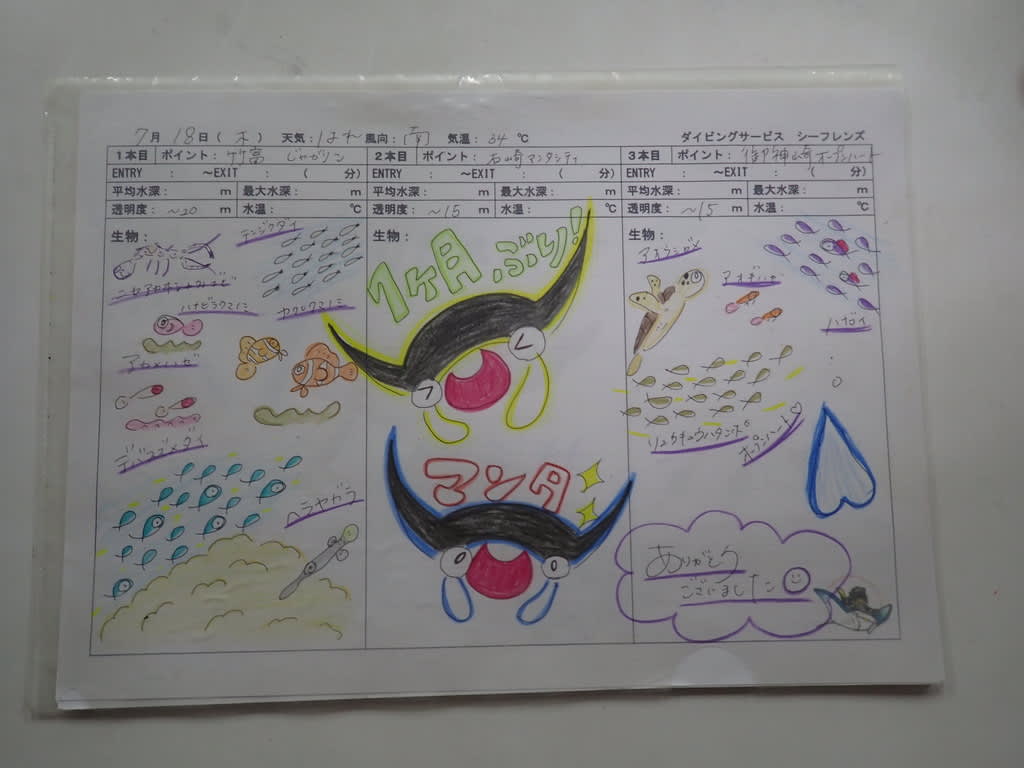 7月 18日(木) 天気:はれ 風向:南 気温:34 ℃ ダイビングサービス シーフレンズ
1本目 ポイント:竹富
ENTRY : ～EXIT : ( 分)
平均水深: m 最大水深: m
透明度: ～20 m 水温: ℃
生物:
テンジクダイ
ハナビラクマノミ
カクレクマノミ
アカメハゼ
デバスズメダイ
ヘラヤガラ
2本目 ポイント:石崎マンタシティ
ENTRY : ～EXIT : ( 分)
平均水深: m 最大水深: m
透明度: ～15 m 水温: ℃
生物:
1ケ月ぶり!
マンタ
3本目 ポイント:御神崎オープンハート
ENTRY : ～EXIT : ( 分)
平均水深: m 最大水深: m
透明度: ～15 m 水温: ℃
生物:
アオウミガメ
ハダカ
リュウキュウハタンポ
オープンハート♡
ありがとう
ございました